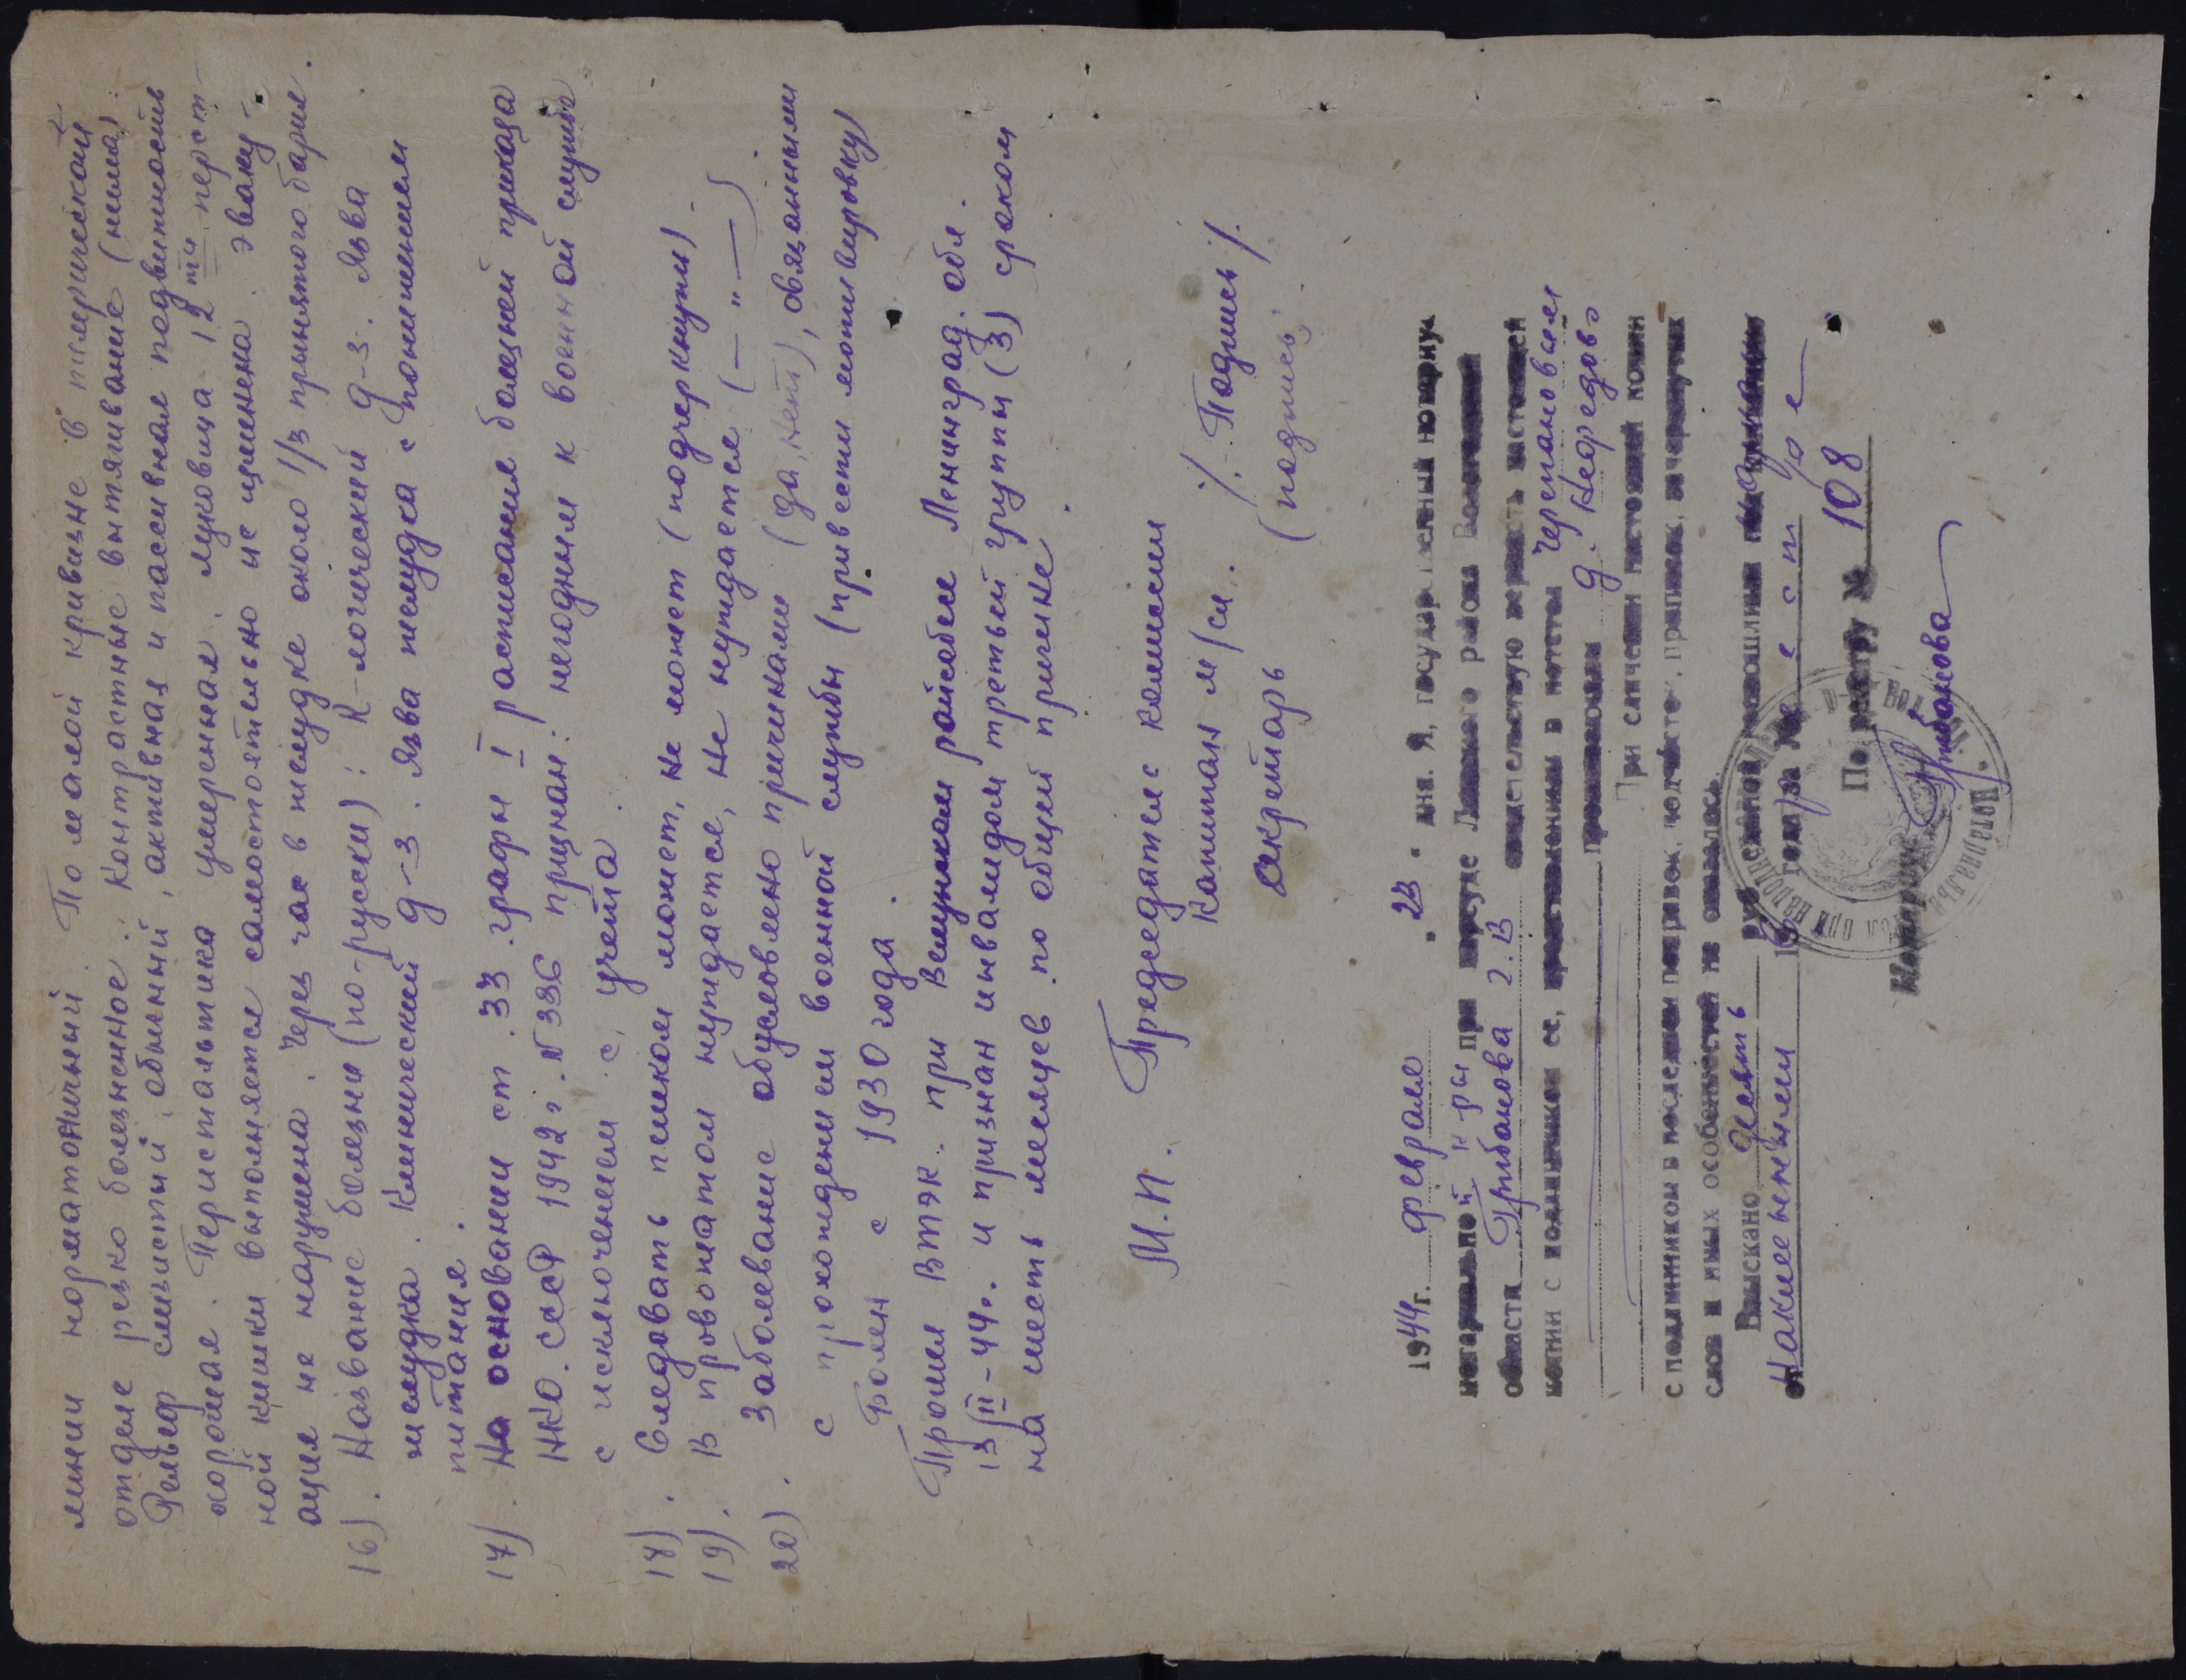 линии норматоничный. По малой кривизне в пилорической
отделе резко болезненное. Контрастные вытягивание (ниша).
Рельеф слизистый, обильный, активная и пассивная подвижность
хорошая. Перистальтика умеренная. Луковица 12ти перст-
ной кишки выполняется самостоятельно не изменена. Эваку-
ация не нарушена. Через час в желудке около 1/3 принятого бария.
16). Название болезни (по-русски): R-логический д-з. Язва
желудка. Клинический д-з. Язва желудка с понижением
питания.
17). На основании ст. 33 графы I расписания болезней приказа
НКО. СССР 1942 г. N 336 признан: негодным к военной службе
с исключением с учета.
18). Следовать пешком может, не может (подчеркнуть).
19). В провожатом нуждается, не нуждается (— " —)
20). Заболевание обусловлено причинами (да, нет), связанными
с прохождением военной службы (привести мотивировку)
Болен с 1930 года.
Прошел ВТЭК. при райсобесе Ленинград. обл.
13/II-44г. и признан инвалидом третьей группы (3) сроком
на шесть месяцев по общей причине.
М.П. Председатель комиссии
Капитан м/сл. /. Подпись /.
Секретарь (подпись).
1944 г. февраля " 23 " дня. Я, государственный нотариус
нотариальной к-ры при нарсуде района Вологодской
области Грибанова З.В свидетельствую верность настоящей
копии с подлинником ее, представленным в нотетол Черепановым
проживающим д.
При сличении настоящей копии
с подлинником в последнем поправок, подчисток, приписок, зачеркнутых
слов и иных особенностей не оказалось.
Взыскано девять руб.
По реестру № 108
Нотариус Грибанова